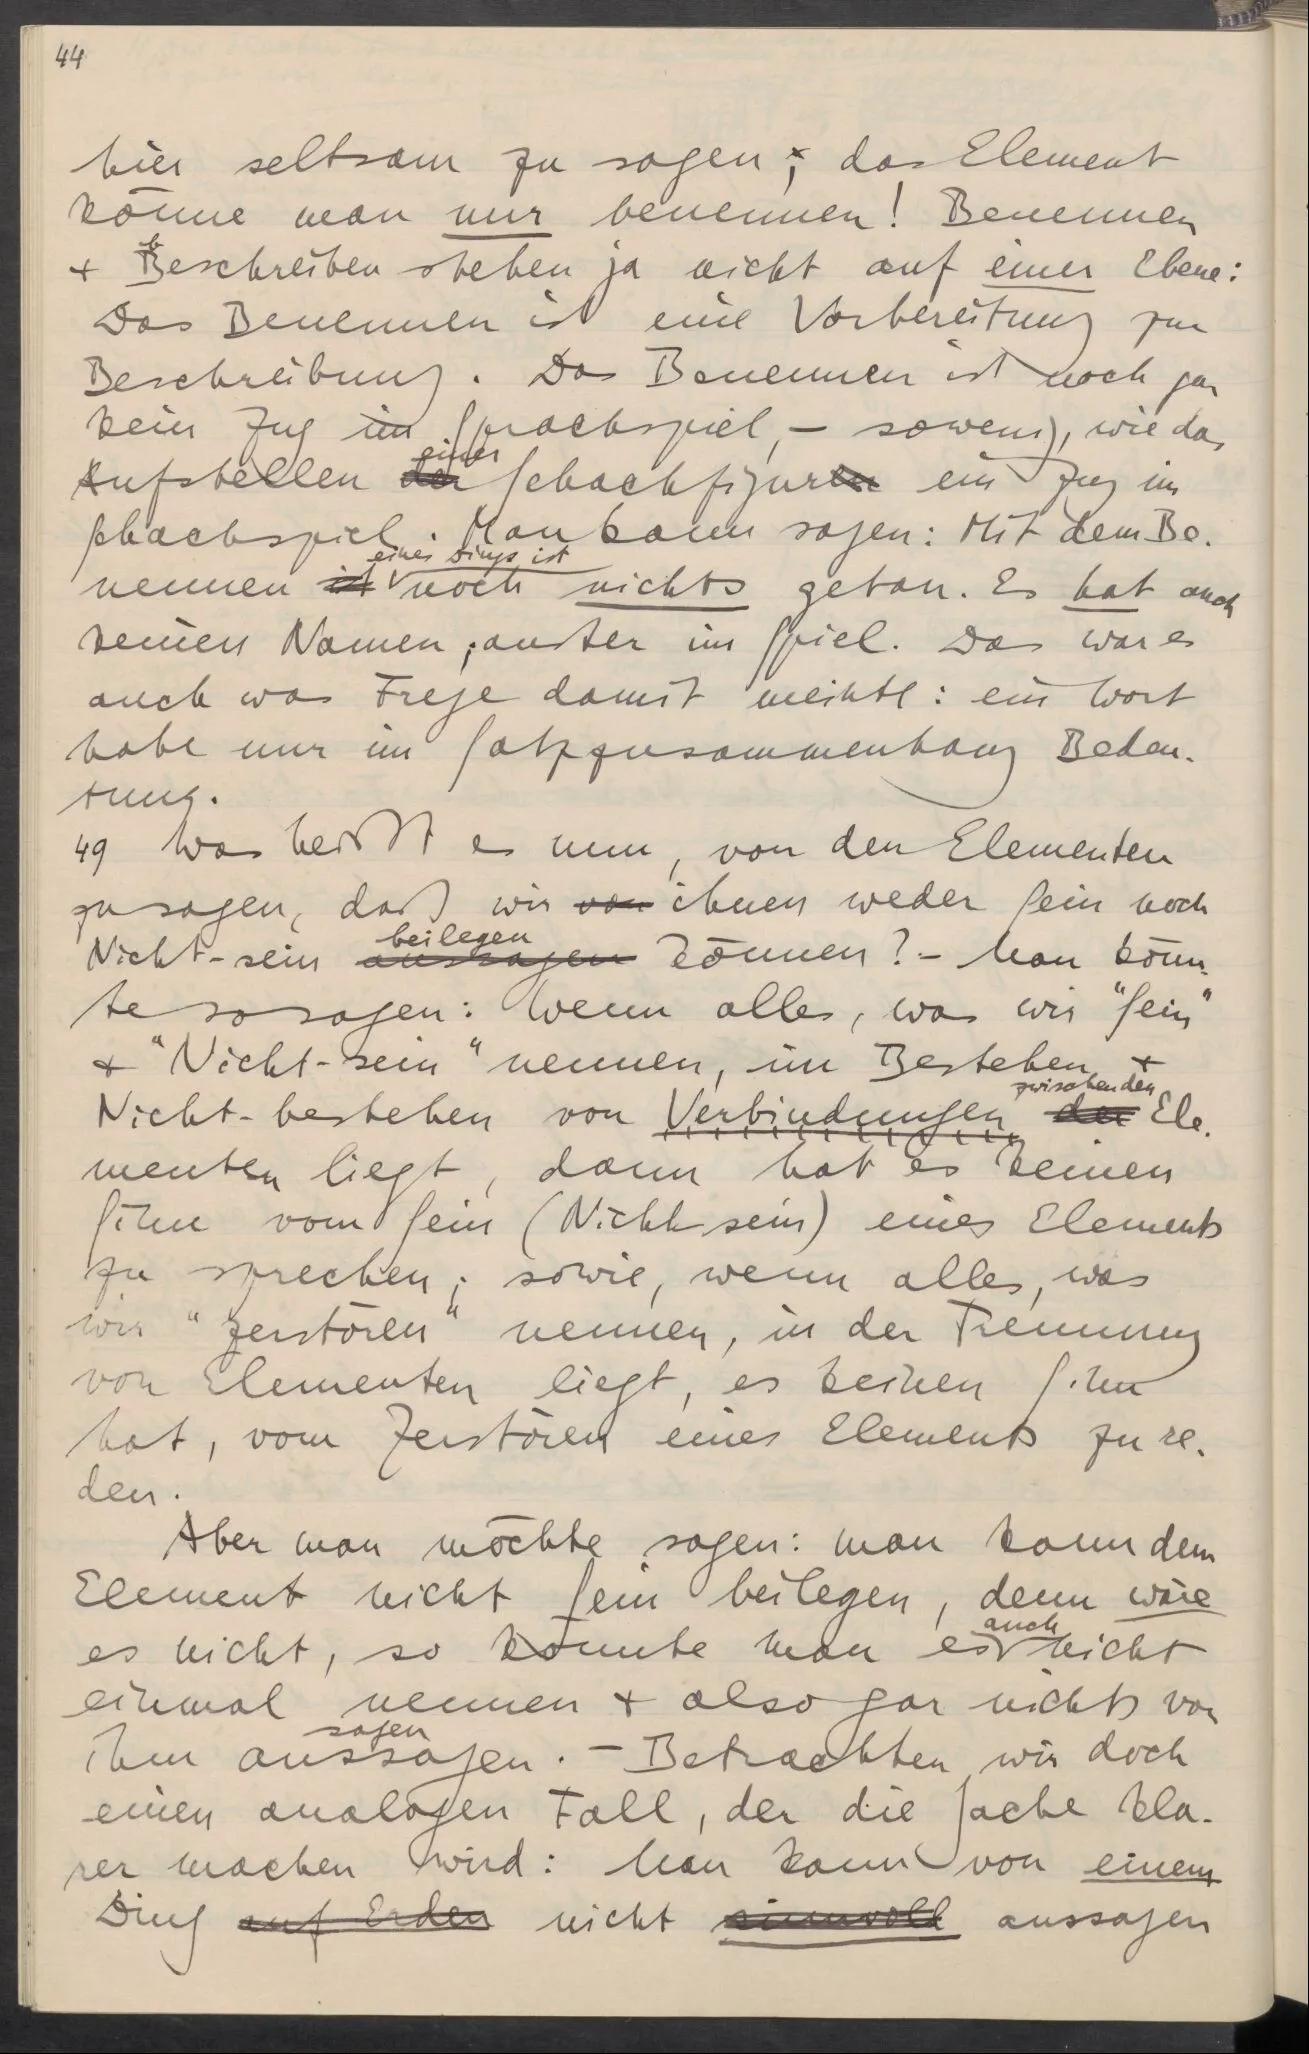 44
hier seltsam zu sagen, das Element
könne man nur benennen! Benennen
+ Beschreiben stehen ja nicht auf einer Ebene:
Das Benennen ist eine Vorbereitung zur
Beschreibung. Das Benennen ist noch gar
kein Zug im Sprachspiel, – sowenig, wie das
Aufstellen der einer Schachfiguren ein Zug im
Schachspiel. Man kann sagen: Mit dem Be-
nennen ist eines Dings ist noch nichts getan. Es hat auch
keinen Namen, außer im Spiel. Das war es
auch was Frege damit meinte: ein Wort
habe nur im Satzzusammenhang Bedeu-
tung.
49 Was heißt es nun, von den Elementen
zu sagen, daß wir von ihnen weder Sein noch
Nicht-sein aussagen beilegen können? – Man könn-
te so sagen: Wenn alles, was wir "Sein"
+ "Nicht-sein" nennen, im Bestehen +
Nicht-bestehen von Verbindungen der zwischen den Ele-
menten liegt, dann hat es keinen
Sinn vom Sein (Nicht sein) eines Elements
zu sprechen; sowie, wenn alles, was
wir "zerstören" nennen, in der Trennung
von Elementen liegt, es keinen Sinn
hat, vom Zerstören eines Elements zu re-
den.
Aber man möchte sagen: man kann dem
Element nicht Sein beilegen, denn wäre
es nicht, so könnte man es auch nicht
einmal nennen + also gar nichts von
ihm aussagen sagen. – Betrachten wir doch
einen analogen Fall, der die Sache kla-
rer machen wird: Man kann von einem
Ding auf Erden nicht sinnvoll aussagen